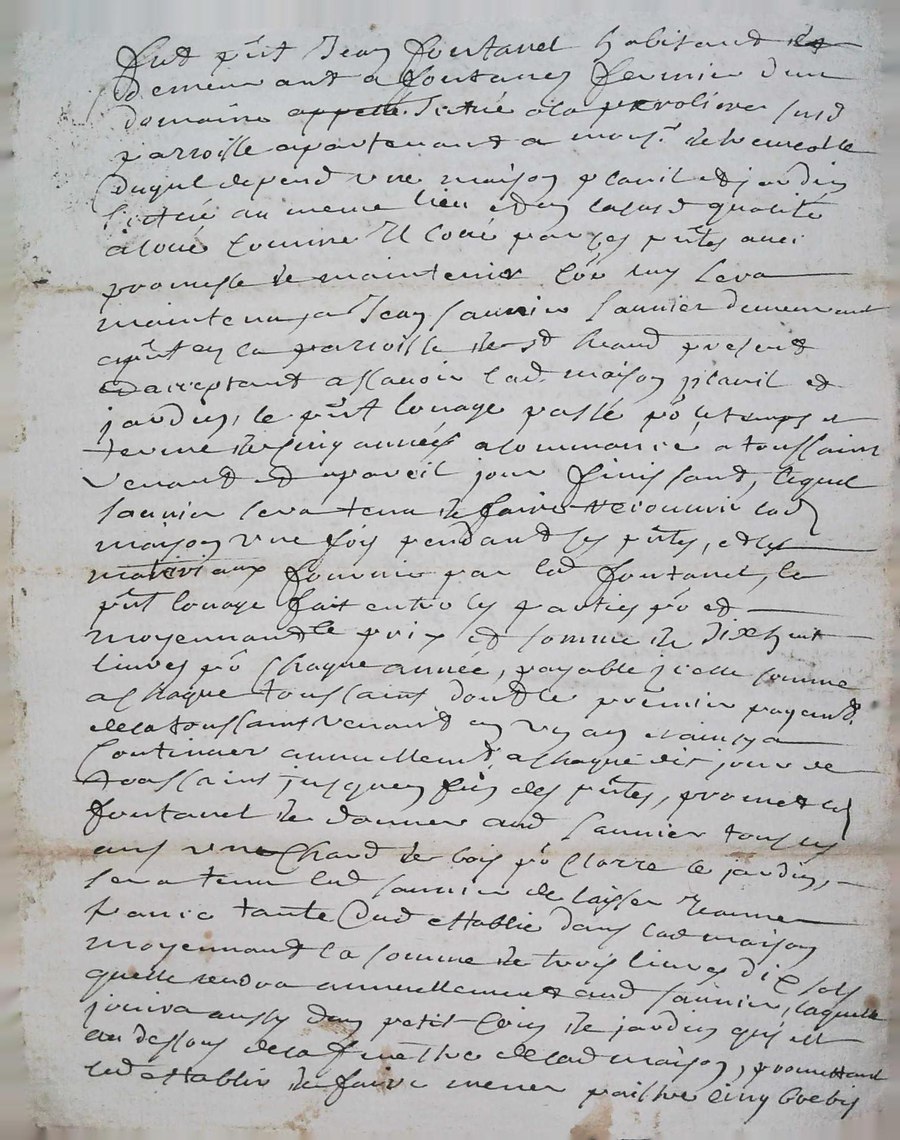 fut p̃nt Jean fontanel habitant
demeurant a fontanes fermier dun
domaine scitué ala perroliere susd
parroisse apartenant a mons.r de
Duquel depend une maison plassil et jardin
scitué au meme lieu et en lasusd qualité
aloué comme Il loue par ces p̃ntes avec
promesse de maintenir a Jean saunier saunier demeurant
en la parroisse de st heand present
et acceptant assavoir lad. maison plassil et
jardin, le p̃nt louage passé po.r le temps et
terme de cinq années acommancer a toussaint
venant et apareil jour finissant, lequel
saunier sera tenu de faire recouvrir lad
maison une fois pendant les p̃ntes, et les
materiaux fournis par led fontanel, le
p̃nt louage fait entre les parties po.r et
moyennant le prix et somme de dix huit
livres po.r chaque année, payable icelle somme
a chaque toussaint dont le premier payant
de la toussaint venant en un an et ainsy a
Continuer annuellement, a chaque dit jour de
toussaint jusques fin des p̃ntes, promet led
fontanel de donner aud saunier tous les
ans une Chard de bois po.r Clorre le jardin,
sera tenu led saunier de laisser Jeanne
tante dud etablie dans lad maison
moyennant la somme de trois livres dix sols
quelle rendra annuellement aud saunier, laquelle
jouira aussy dun petit Coin de jardin qui est
au dessous de la fenethre de lad maison, promettant
lad etablie de faire mener paithre cinq brebis